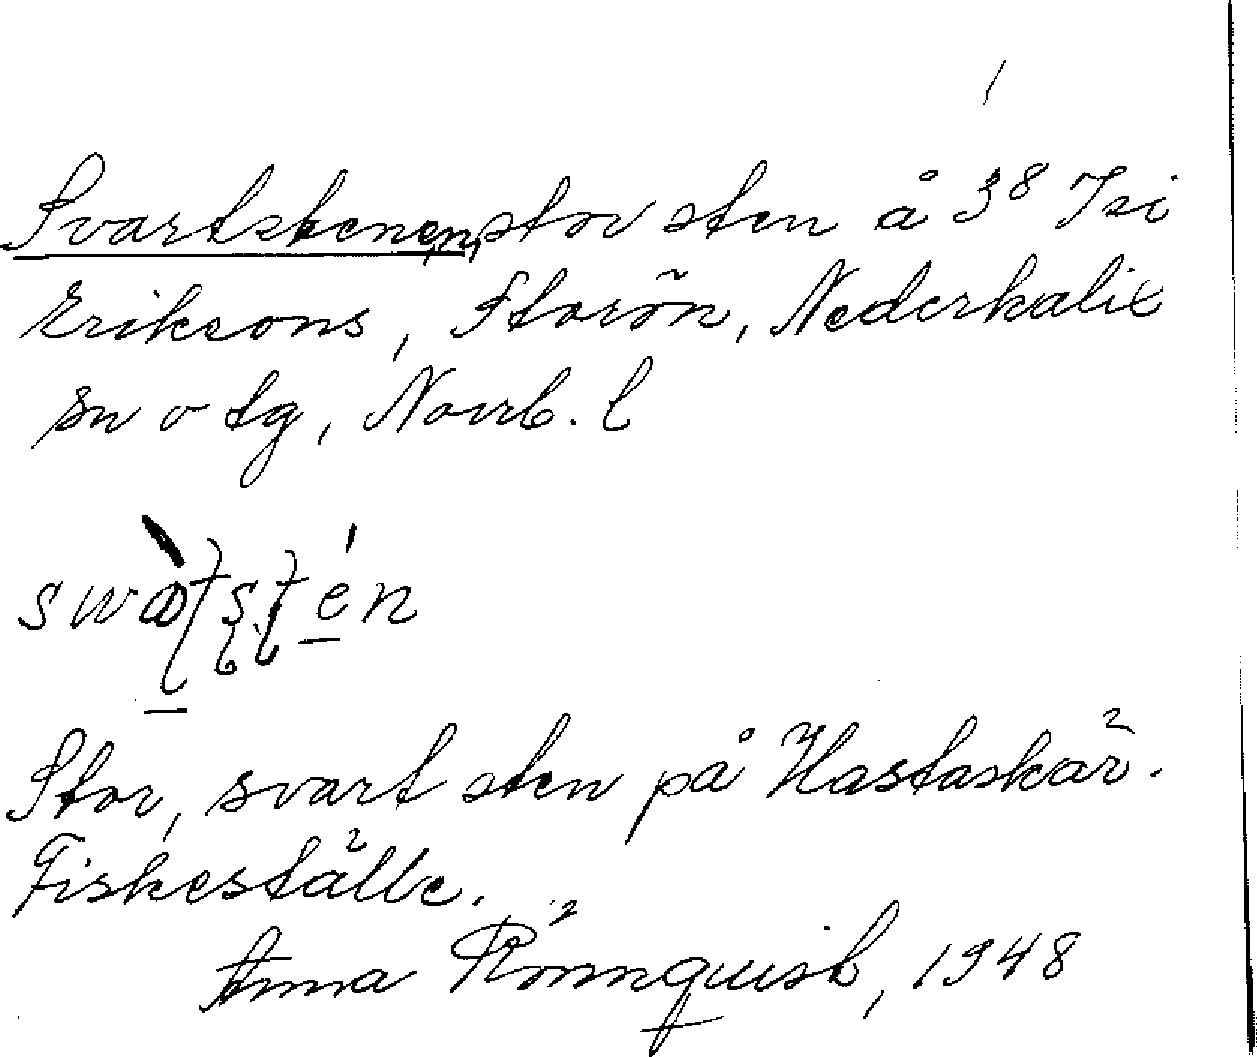 Svartstenen, stor sten å 3⁸ Isi
Eriksons, Storön, Nederkalix
sn o tg, Norrb. l
Stor, svart sten på Hastaskär.
Fiskeställe.
Anna Rönnquist, 1948